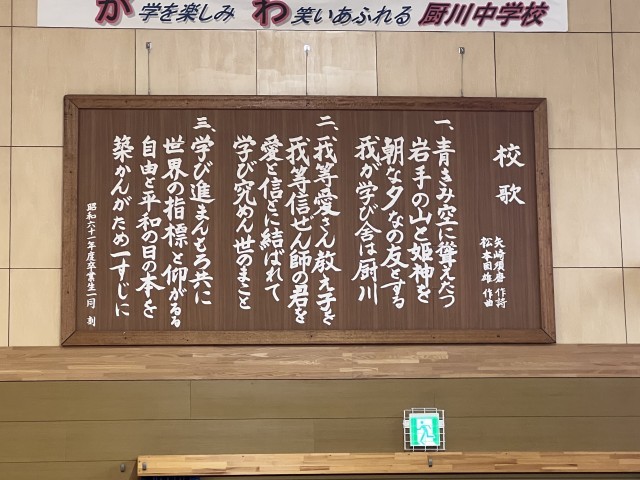 が 学を楽しみ わ 笑いあふれる 厨川中学校
校歌
矢崎須磨 作詩
松本国雄 作曲
一、青きみ空に聳えたつ
岩手の山と姫神を
朝な夕なの友とする
我が学び舎は厨川
二、我等愛さん教え子を
我等信ぜん師の君を
愛と信とに結ばれて
学び究めん世のまこと
三、学び進まんもろ共に
世界の指標と仰がるる
自由と平和の日の本を
築かんがため一すじに
昭和六十一年度卒業生一同 刻